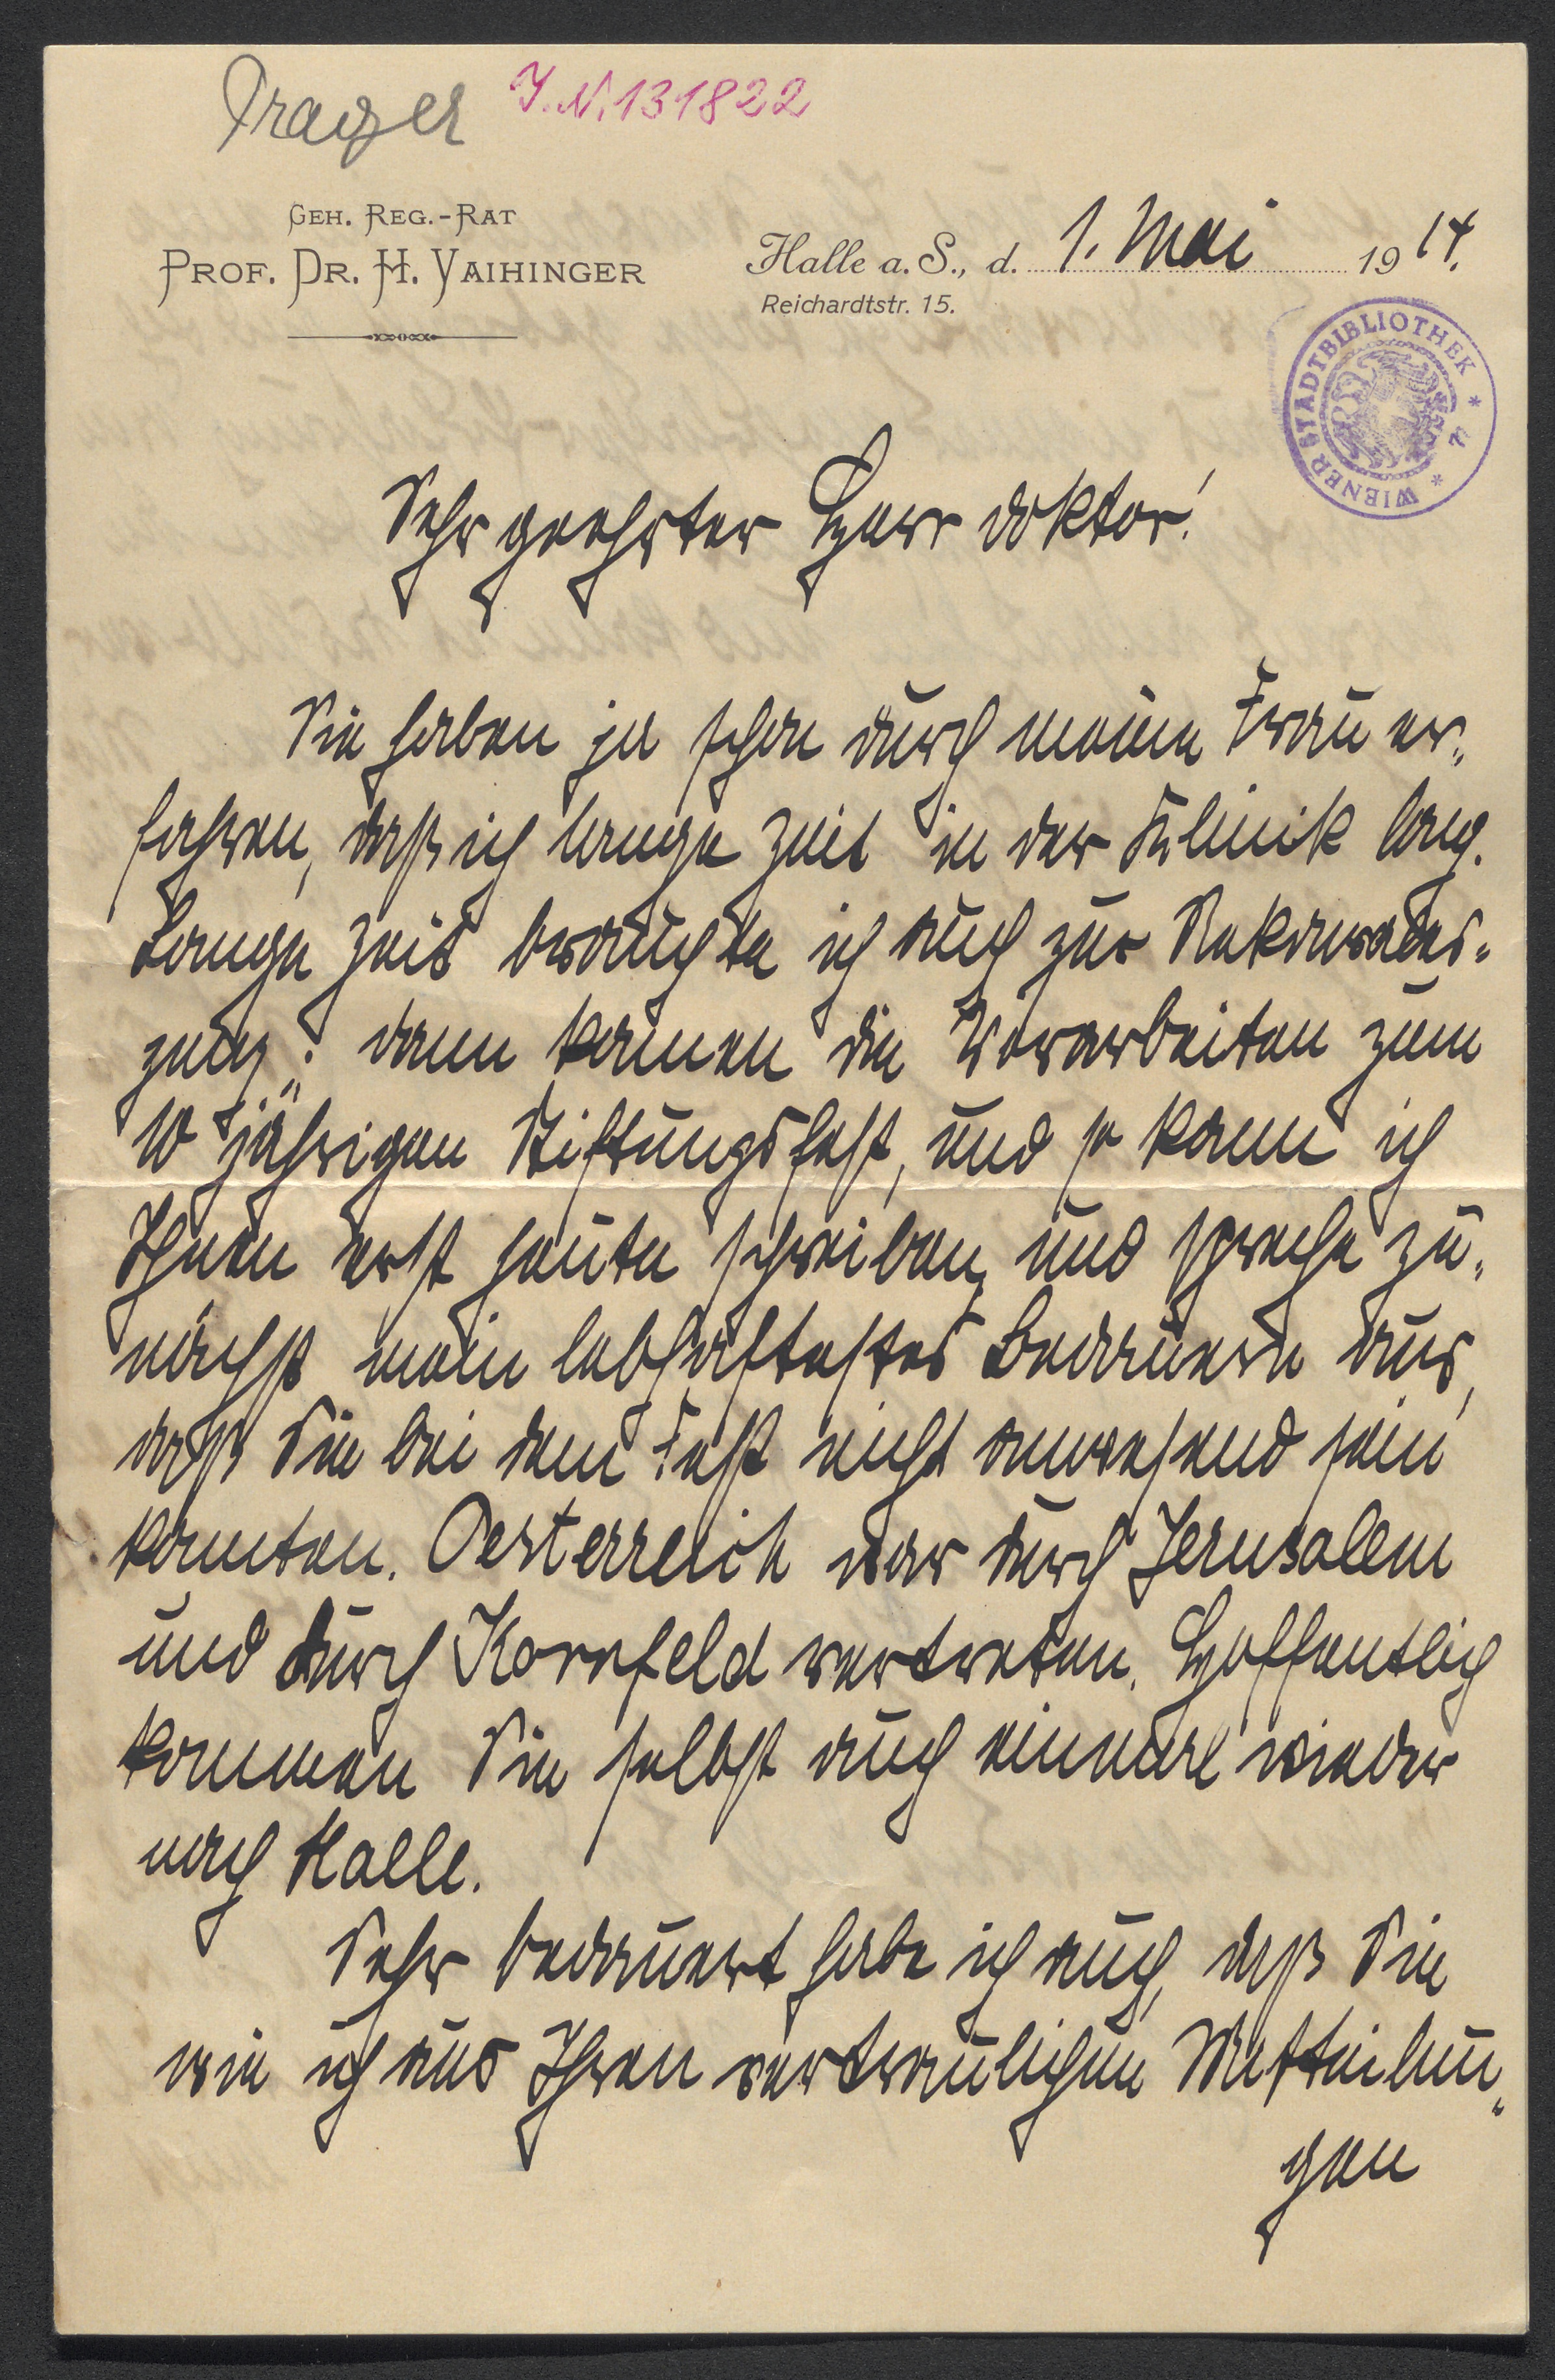 Prager J. N. 131822
GEH. REG.-RAT
PROF. DR. H. VAIHINGER
Halle a. S., d. 1. Mai 1914.
Reichardtstr. 15.
WIENER STADTBIBLIOTHEK
Sehr geehrter Herr Doktor!
Sie haben ja schon durch meine Frau er-
fahren, daß ich lange Zeit in der Klinik lag.
Lange Zeit brauchte ich auch zur
dann kamen die Vorarbeiten zum
10 jährigen Stiftungsfest, und so kann ich
Ihnen erst heute schreiben, und spreche zu-
nächst mein lebhaftestes Bedauern aus,
daß Sie bei dem Fest nicht anwesend sein
konnten. Oesterreich war durch Jerusalem
und durch Kornfeld vertreten. Hoffentlich
kommen Sie selbst auch einmal wieder
nach Halle.
Sehr bedauert habe ich auch, daß Sie
wie ich aus Ihren vertraulichen Mitteilun-
gen